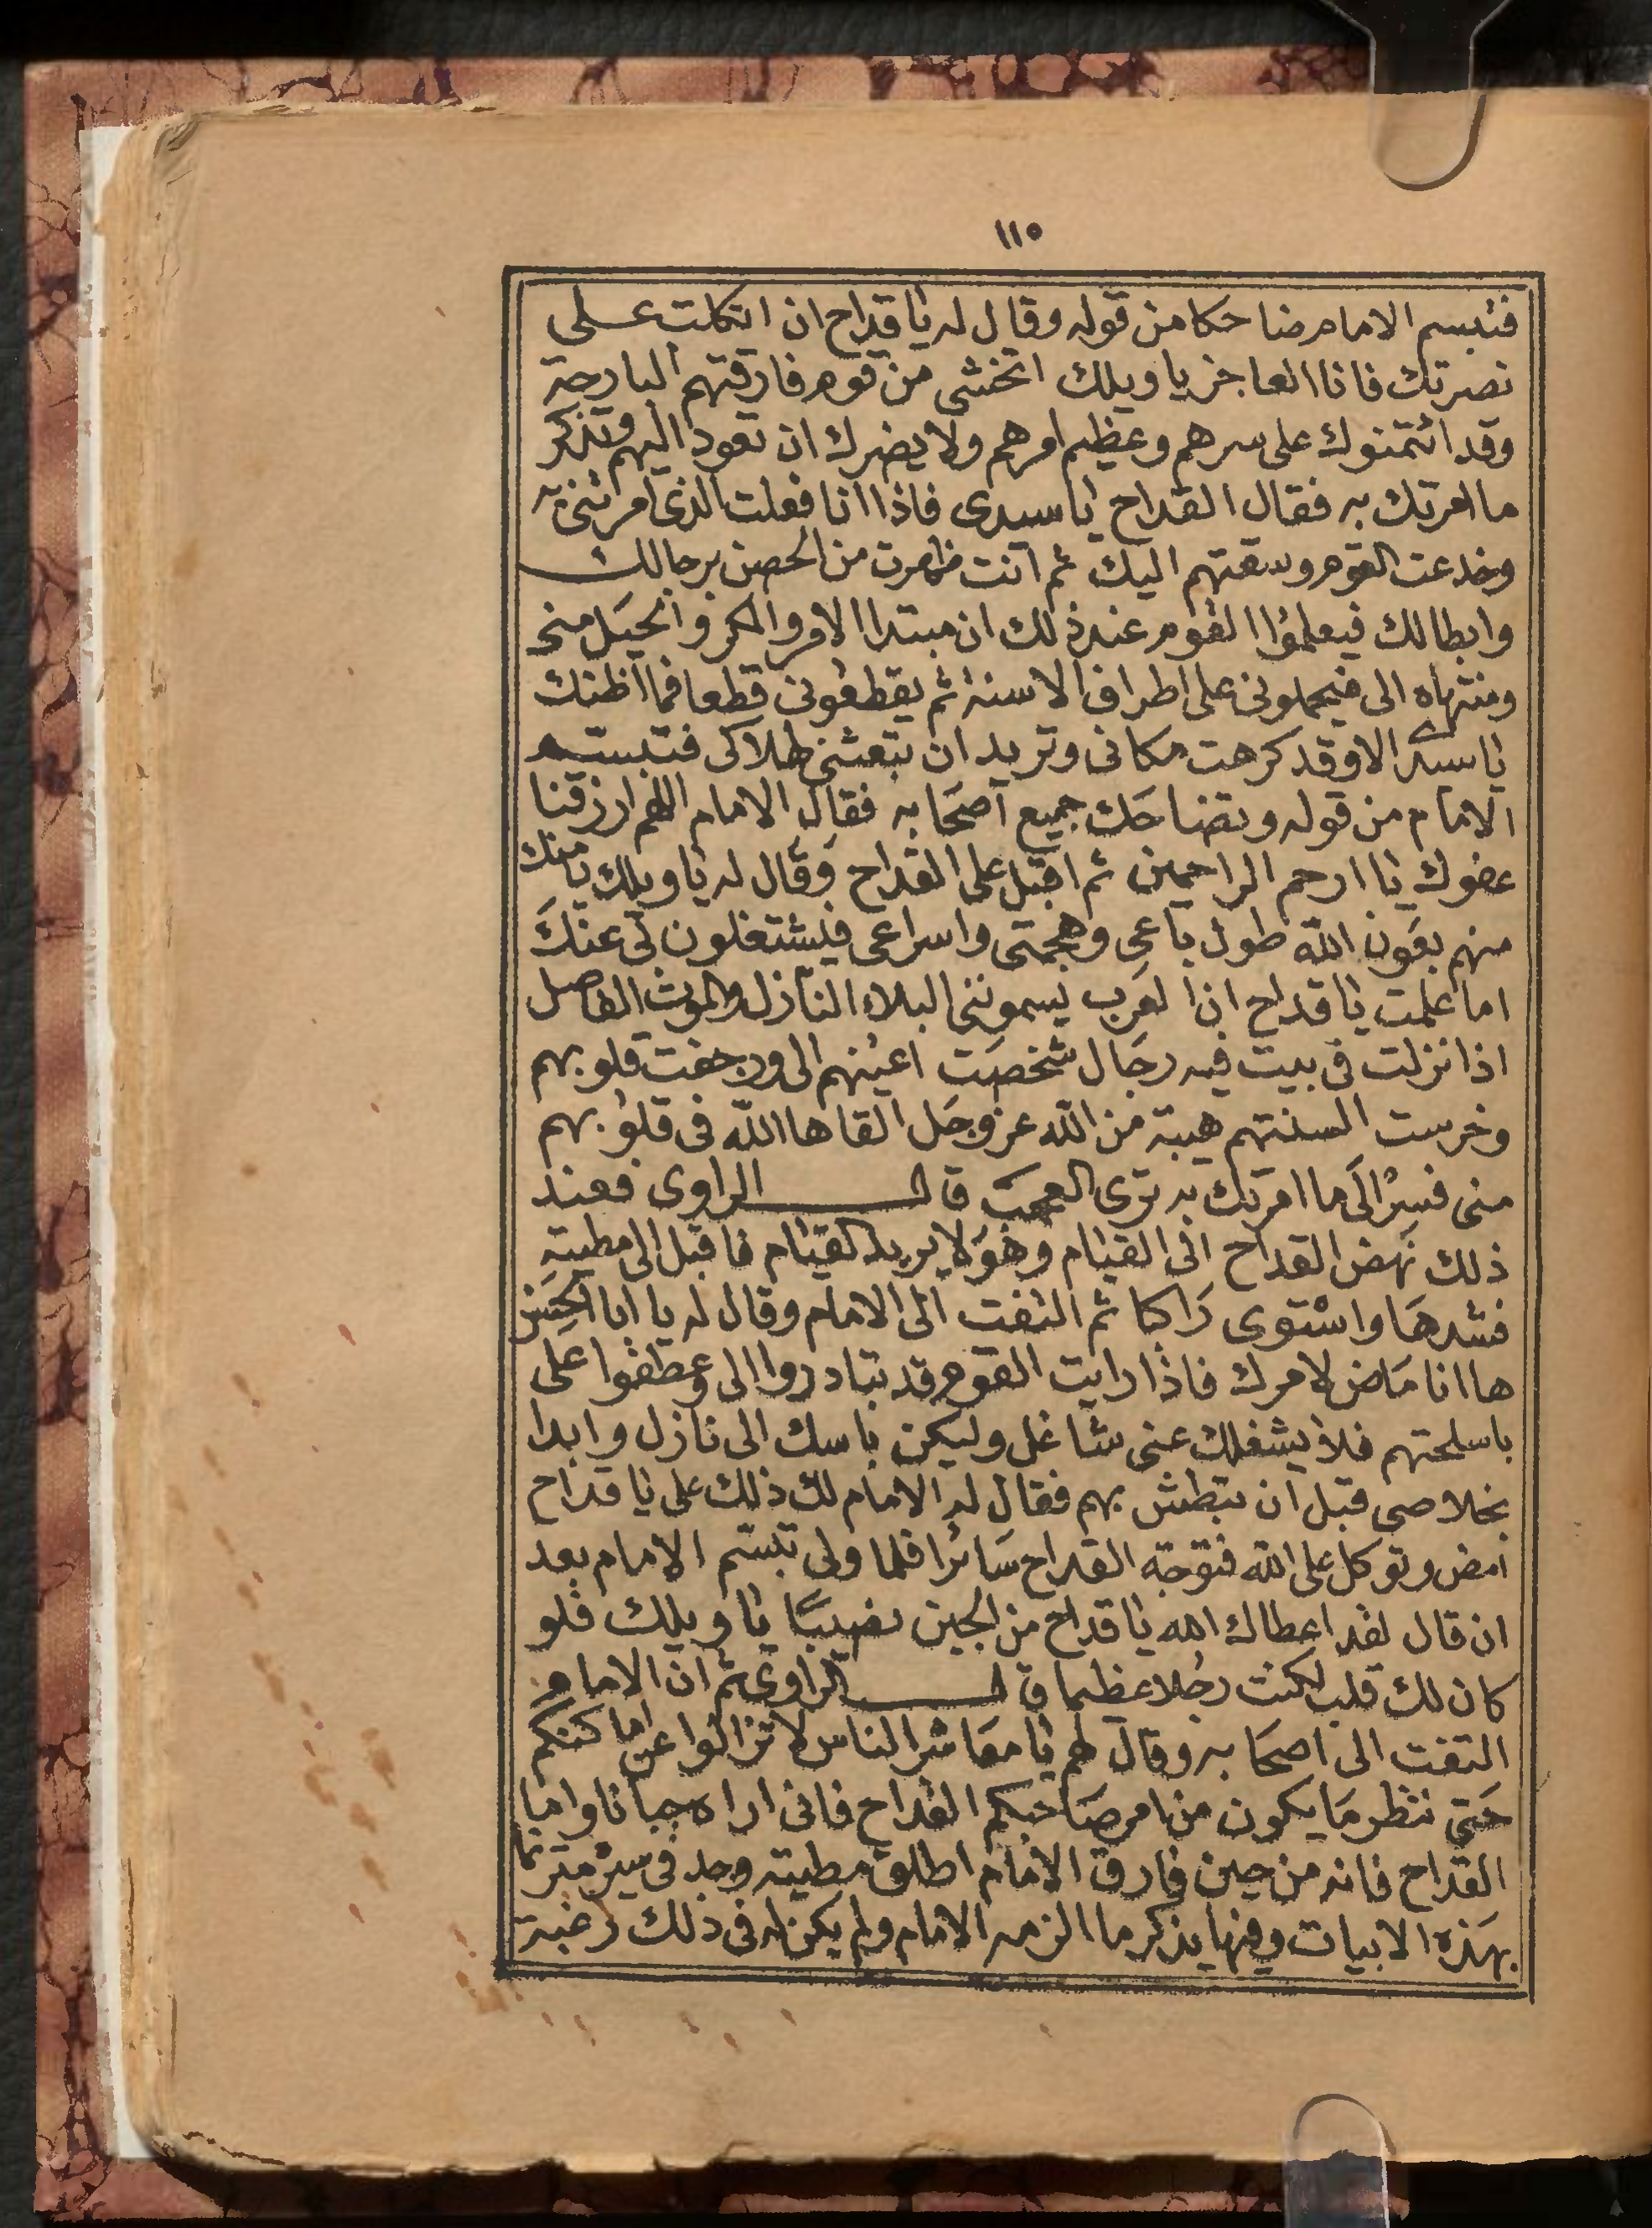 ١١٥
فتبسم الامام ضاحكا من قوله وقال له يا قداح ان اتكلت على
نصرتك فانا العاجز يا ويلك اتخشى من قوم فارقتهم البارحة
وقد ائتمنوك على سرهم وعظيم امرهم ولا يضرك ان تعود اليهم وتذكر
ما امرتك به فقال القداح يا سيدى فاذا انا فعلت الذى امرتنى به
وخدعت القوم وسقتهم اليك ثم انت ظهرت من الحصن برجالك
وابطالك فيعلموا القوم عند ذلك ان مبتدا الامر والمكر والحيل منى
ومنتهاه الى فيحملونى على اطراف الاسنة ثم يقطعونى قطعا فما اظنك
يا سيدى الا وقد كرهت مكانى وتريد ان تبعثنى لهلاكى فتبسم
الامام من قوله وتضاحك جميع اصحابه فقال الامام اللهم ارزقنا
عفوك يا ارحم الراحمين ثم اقبل على القداح وقال له يا ويلك يامنك
منهم بعون الله طول باعى وهجمتى واسراعى فيشتغلون بى عنك
اما علمت يا قداح ان العرب يسموننى البلاء النازل والموت الفاصل
اذا نزلت فى بيت فيه رجال شخصت اعينهم الى ورجفت قلوبهم
وخرست السنتهم هيبة من الله عز وجل القاها الله فى قلوبهم
منى فسر الى ما امرتك به ترى العجب قال الراوى فعند
ذلك نهض القداح الى القيام وهو لا يريد القيام فاقبل الى مطيته
فشدها واستوى راكبا ثم التفت الى الامام وقال له يا ابا الحسن
ها انا ماض لامرك فاذا رايت القوم قد تبادروا الى وعطفوا على
باسلحتهم فلا يشغلك عنى شاغل وليكن باسك الى نازل وابدا
بخلاصى قبل ان تبطش بهم فقال له الامام لك ذلك على يا قداح
امض وتوكل على الله فتوجه القداح سائرا فلما ولى تبسم الامام بعد
ان قال لقد اعطاك الله يا قداح من الجبن نصيبا يا ويلك فلو
كان لك قلب لكنت رجلا عظيما قال الراوى ثم ان الامام
التفت الى اصحابه وقال لهم يا معاشر الناس لا تزالوا عن اماكنكم
حتى ننظر ما يكون من امر صاحبكم القداح فانى اراه جبانا واما
القداح فانه من حين فارق الامام اطلق مطيته وجد فى سيره مترنما
بهذه الابيات وفيها يذكر ما الزمه الامام ولم يكن له فى ذلك رغبة